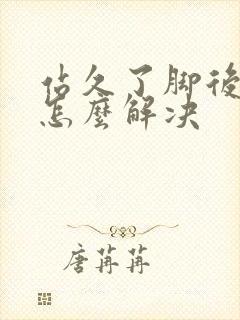 佔久了脚後
怎麼解决
唐苒苒